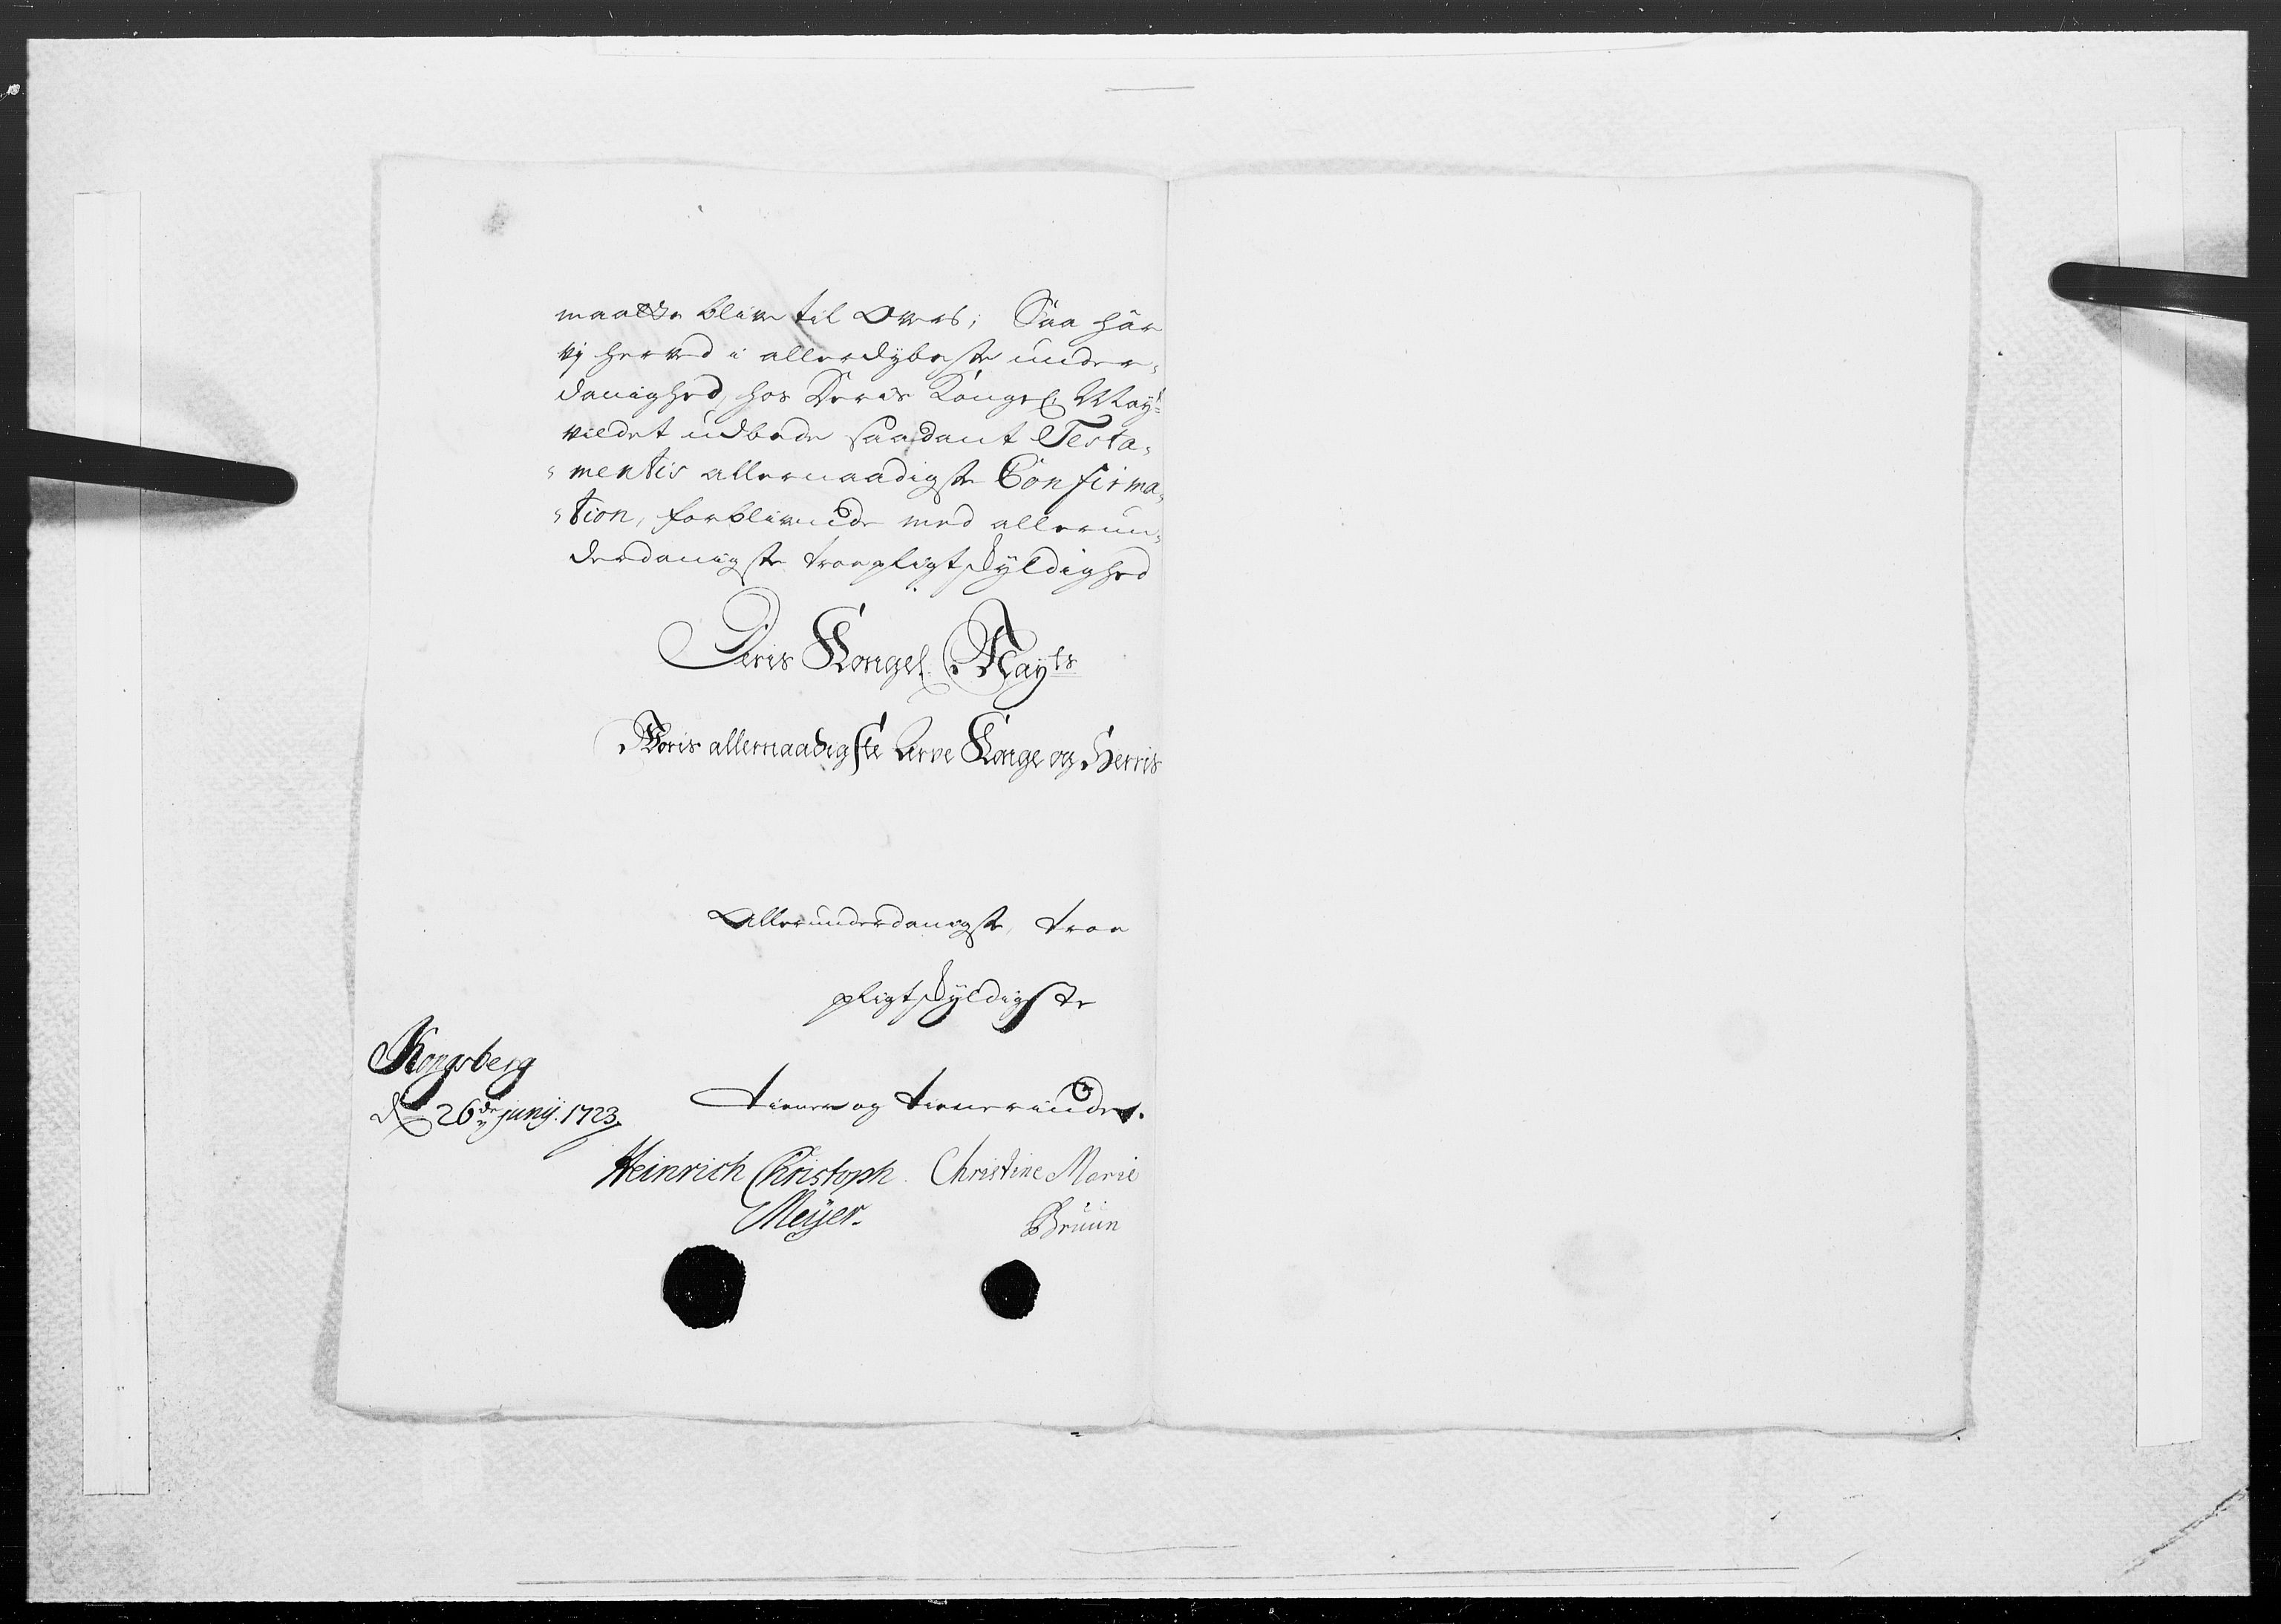 maatte blive til Overs; Saa har
vj herved i allerdybeste under-
danighed, hos Deris Kongel. May.t
vildet udbede saadant Testa-
mentis allernaadigste Confirma-
tion, forblivende med allerun-
derdanigste troepligtskyldighed
Deris Kongel. Mayts
Voris allernaadigste Arve Konge og Herris
Allerunderdanigste, troe
pligtskyldigste
Kongsberg
d. 26de junij. 1723.
tiener og tienerinde.
Heinrich Christoph Christine Marie
Meijer. Bruun